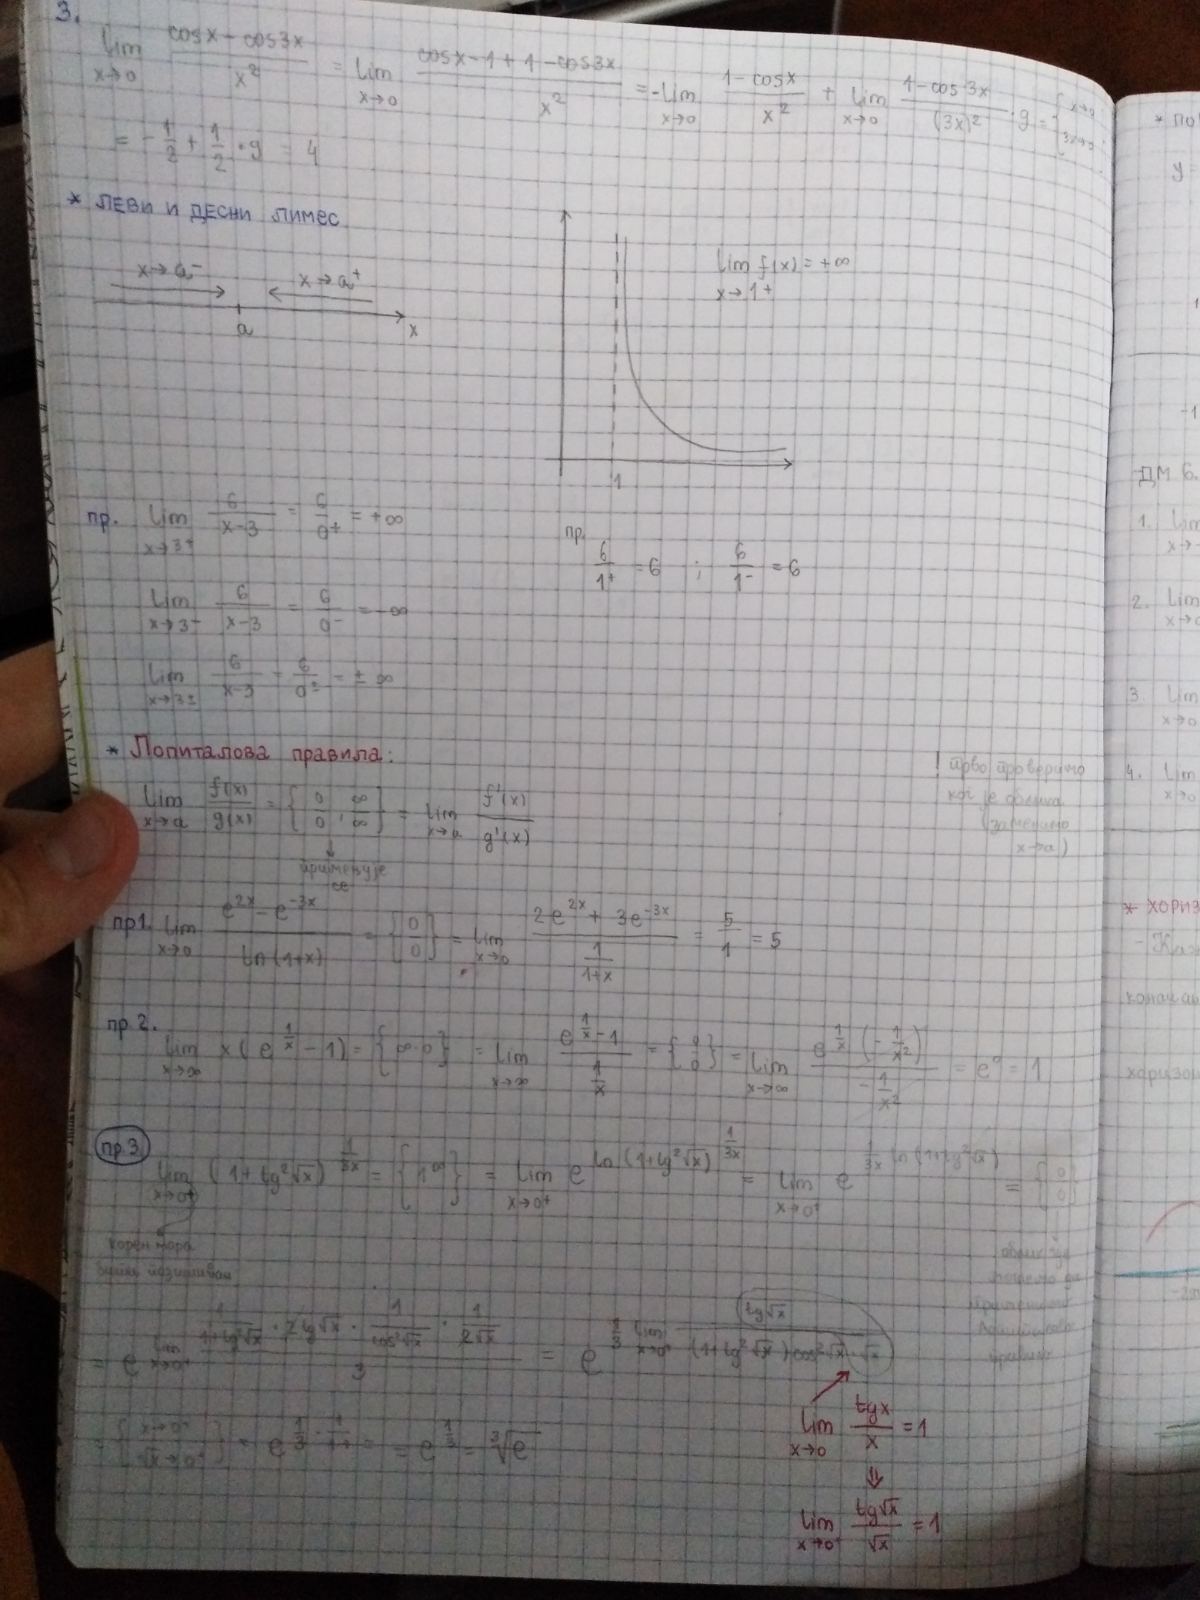 3.
lim x→0 (cosx - cos3x)/x² = lim x→0 (cosx - 1 + 1 - cos3x)/x² = - lim x→0 (1 - cosx)/x² + lim x→0 (1 - cos3x)/(3x)² · 9 = { x→0 3x→0
= - 1/2 + 1/2 · 9 = 4
* ЛЕВИ И ДЕСНИ ЛИМЕС
x→a⁻ x→a⁺
a x
lim x→1⁺ f(x) = +∞
1
пр. lim x→3⁺ 6/(x-3) = 6/0⁺ = +∞
пр. 6/1⁺ = 6 ; 6/1⁻ = 6
lim x→3⁻ 6/(x-3) = 6/0⁻ = -∞
lim x→3± 6/(x-3) = 6/0± = ±∞
* Лопиталова правила:
lim x→a f(x)/g(x) = { 0/0, ∞/∞ } = lim x→a f'(x)/g'(x)
примењује се
! прво проверимо
ког је облика
(заменимо
x→a)
пр1. lim x→0 (e^(2x) - e^(-3x))/ln(1+x) = { 0/0 } = lim x→0 (2e^(2x) + 3e^(-3x))/(1/(1+x)) = 5/1 = 5
пр 2.
lim x→∞ x(e^(1/x) - 1) = { ∞·0 } = lim x→∞ (e^(1/x) - 1)/(1/x) = { 0/0 } = lim x→∞ (e^(1/x) (-1/x²))/(-1/x²) = e⁰ = 1
пр.3.
lim x→0⁺ (1+tg²√x)^(1/3x) = { 1^∞ } = lim x→0⁺ e^(ln(1+tg²√x)^(1/3x)) = lim x→0⁺ e^(1/3x ln(1+tg²√x)) = { 0/0 }
корен мора
= e^(lim x→0⁺ (1/(1+tg²√x) · 2tg√x · 1/cos²√x · 1/(2√x))/3) = e^(1/3 lim x→0⁺ tg√x/((1+tg²√x)cos²√x · √x))
= { x→0⁺ √x→0⁺ } = e^(1/3 · 1/1) = e^(1/3) = ³√e
lim x→0 tgx/x = 1
⇓
lim x→0⁺ tg√x/√x = 1
* ПО
y =
-1
ДМ 6.
1. lim x→-
2. lim x→0
3. lim x→0
4. lim x→0
* ХОРИЗ
- Каж
хоризон